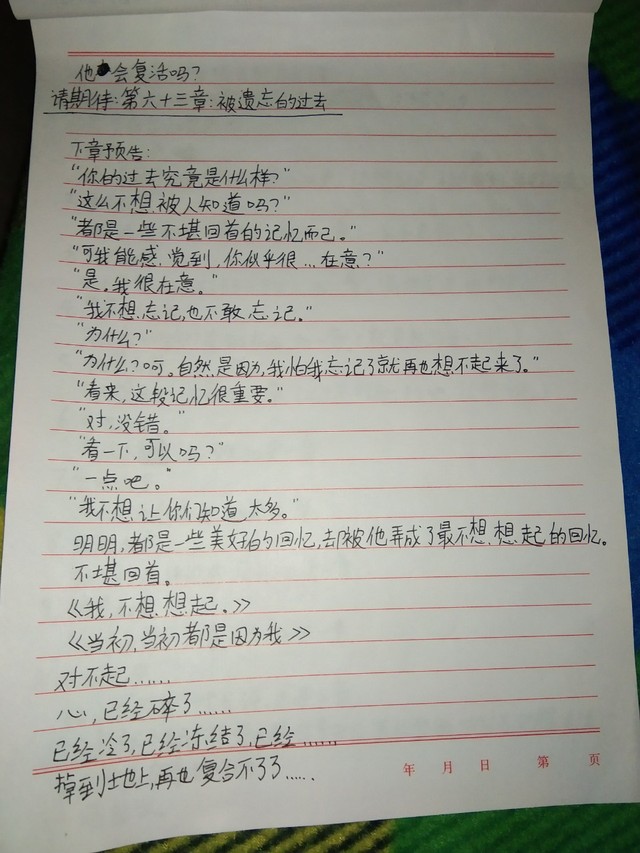 他会复活吗?
请期待:第六十三章:被遗忘的过去
下章预告:
“你的过去究竟是什么样?”
“这么不想被人知道吗?”
“都是一些不堪回首的记忆而已。”
“可我能感觉到,你似乎很...在意?”
“是,我很在意。”
“我不想忘记,也不敢忘记。”
“为什么?”
“为什么?呵。自然是因为,我怕我忘记了就再也想不起来了。”
“看来,这段记忆很重要。”
“对,没错。”
“看一下,可以吗?”
“一点吧。”
“我不想让你们知道太多。”
明明,都是一些美好的回忆,却被他弄成了最不想想起的回忆。
不堪回首。
《我,不想想起。》
《当初,当初都是因为我》
对不起……
心,已经碎了……
已经冷了,已经冻结了,已经……
掉到地上,再也复合不了了……
年 月 日 第 页